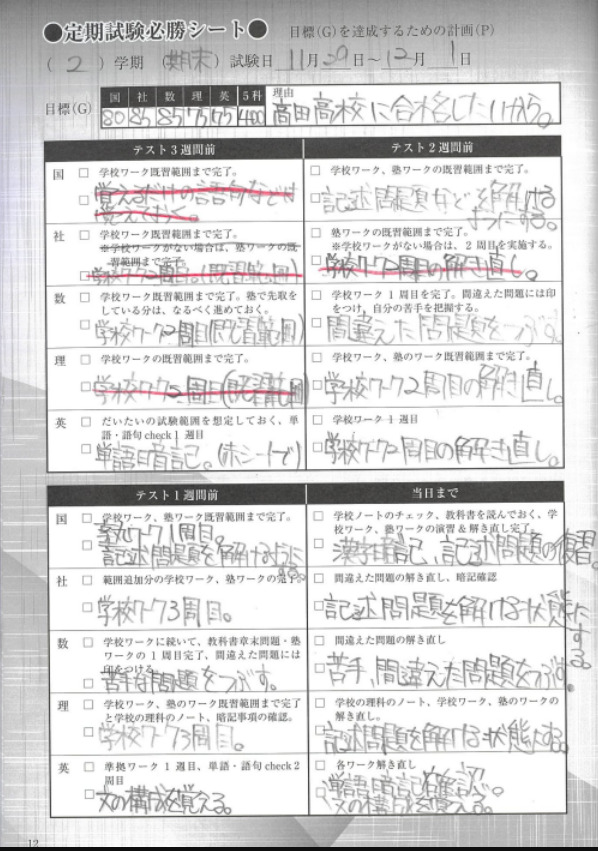 ●定期試験必勝シート●
目標(G)を達成するための計画(P)
( 2 ) 学期 (期末) 試験日 11月29日～12月1日
目標(G)
国 社 数 理 英 5科 理由
80 85 85 75 75 400 高田高校に合格したいから。
テスト3週間前
国 □ 学校ワーク既習範囲まで完了。
□ 覚えるだけの語句などは
覚えておく。
社 □ 学校ワーク既習範囲まで完了。
※学校ワークがない場合は、塾ワークの既
習範囲まで完了
□ 学校ワーク2周目。(既習範囲)
数 □ 学校ワーク既習範囲まで完了。塾で先取を
している分は、なるべく進めておく。
□ 学校ワーク2周目(既習範囲)
理 □ 学校ワークの既習範囲まで完了。
□ 学校ワーク2周目(既習範囲)
英 □ だいたいの試験範囲を想定しておく、単
語・語句check1 週目
□ 単語暗記。(赤シートで)
テスト2週間前
□ 学校ワーク、塾ワークの既習範囲まで完了。
□ 記述問題などを解ける
ようにする。
□ 塾ワークの既習範囲まで完了。
※学校ワークがない場合は、2 周目を実施する。
□ 学校ワーク2周目の解き直し。
□ 学校ワーク 1 周目を完了。間違えた問題には印
をつけ、自分の苦手を把握する。
□ 間違えた問題をつぶす。
□ 学校ワーク、塾のワーク既習範囲まで完了。
□ 学校ワーク2周目の解き直し。
□ 学校ワーク 1 週目
□ 学校ワーク2周目の解き直し。
テスト1週間前
国 □ 学校ワーク、塾ワーク既習範囲まで完了。
学校ワーク1周目。
□ 記述問題を解けるように
する。
社 □ 範囲追加分の学校ワーク、塾ワークの完了。
□ 学校ワーク3周目。
数 □ 学校ワークに続いて、教科書章末問題・塾
ワークの 1 周目完了、間違えた問題には
印をつける。
□ 苦手な問題をつぶす。
理 □ 学校ワーク、塾のワーク既習範囲まで完了
と学校の理科のノート、暗記事項の確認。
□ 学校ワーク3周目。
英 □ 準拠ワーク 1 週目、単語・語句check2
周目
□ 文の構成を覚える。
当日まで
□ 学校ノートのチェック、教科書を読んでおく、学
校ワーク、塾ワークの演習&解き直し完了。
□ 漢字暗記、記述問題の復習。
□ 間違えた問題の解き直し、暗記確認
□ 記述問題を解ける状態に
する。
□ 間違えた問題の解き直し
□ 苦手、間違えた問題をつぶす。
□ 学校の理科のノート、学校ワーク、塾のワークの
解き直し。
□ 記述問題を解ける状態にする。
□ 各ワーク解き直し
□ 単語暗記確認。
文の構成を覚える。
12